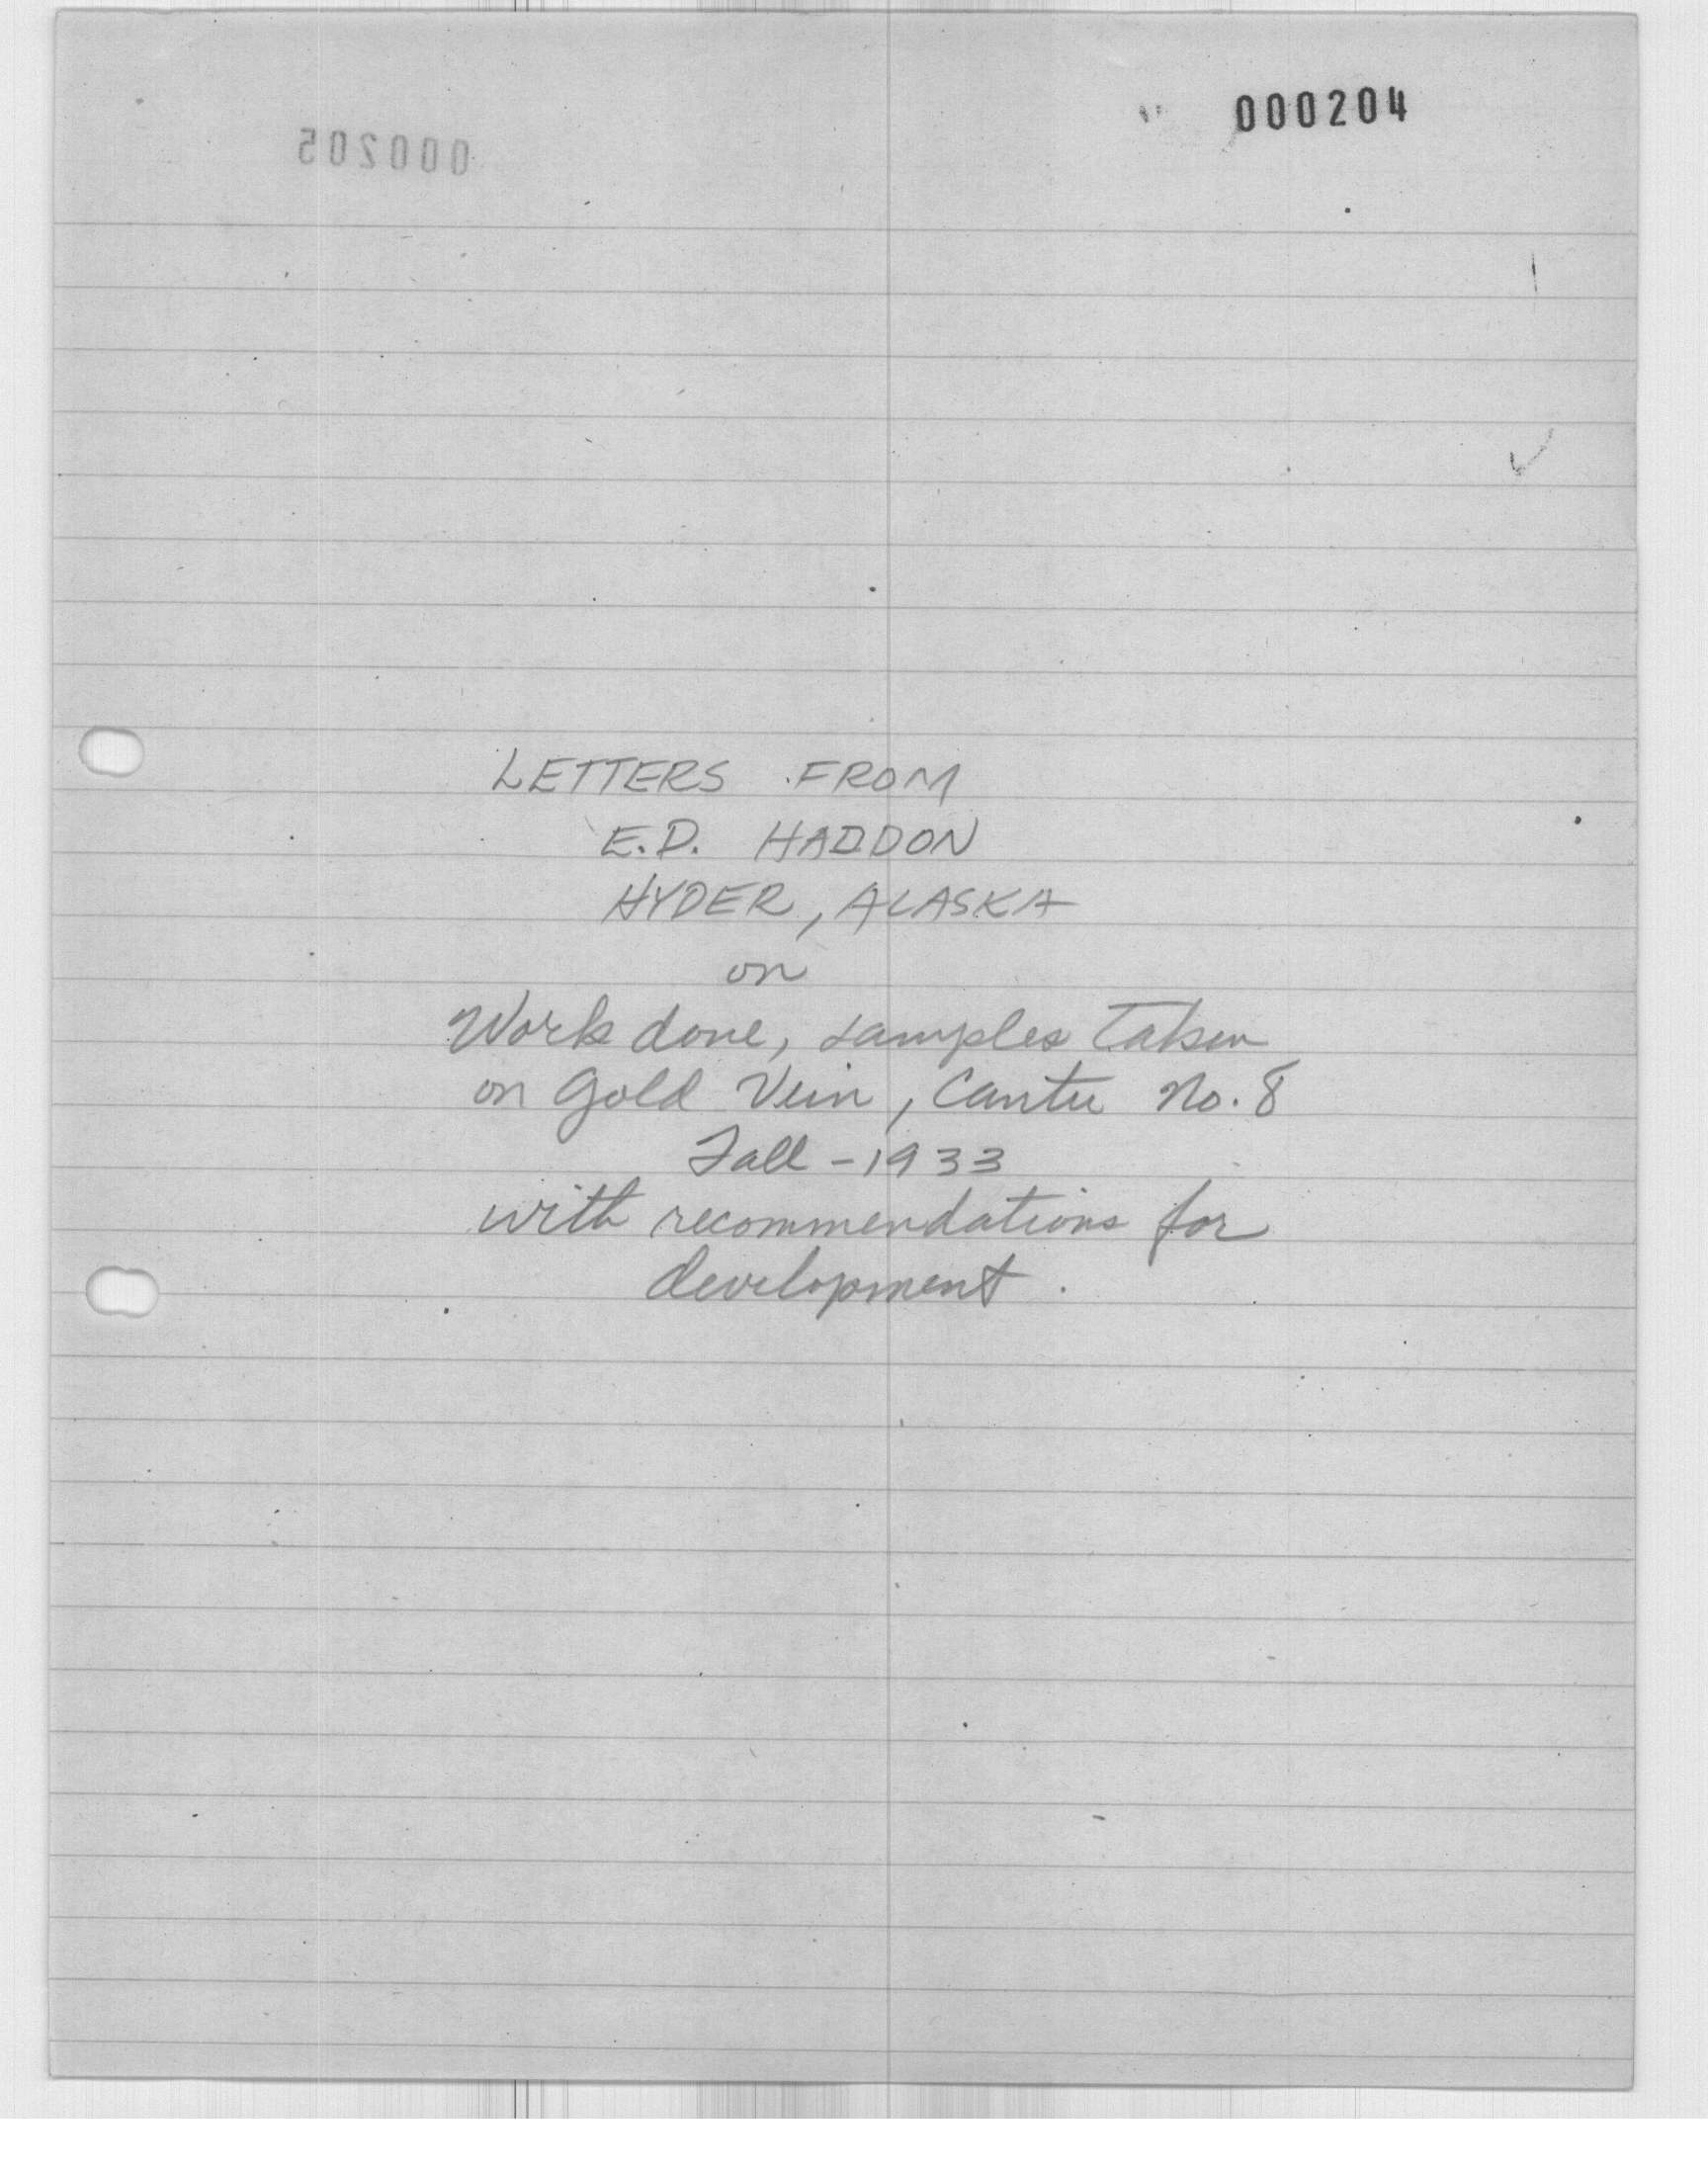 000204
000205
LETTERS FROM
E.D. HADDON
HYDER, ALASKA
on
Work done, samples taken
on Gold Vein, Cantu No. 8
Fall - 1933
with recommendations for
development.